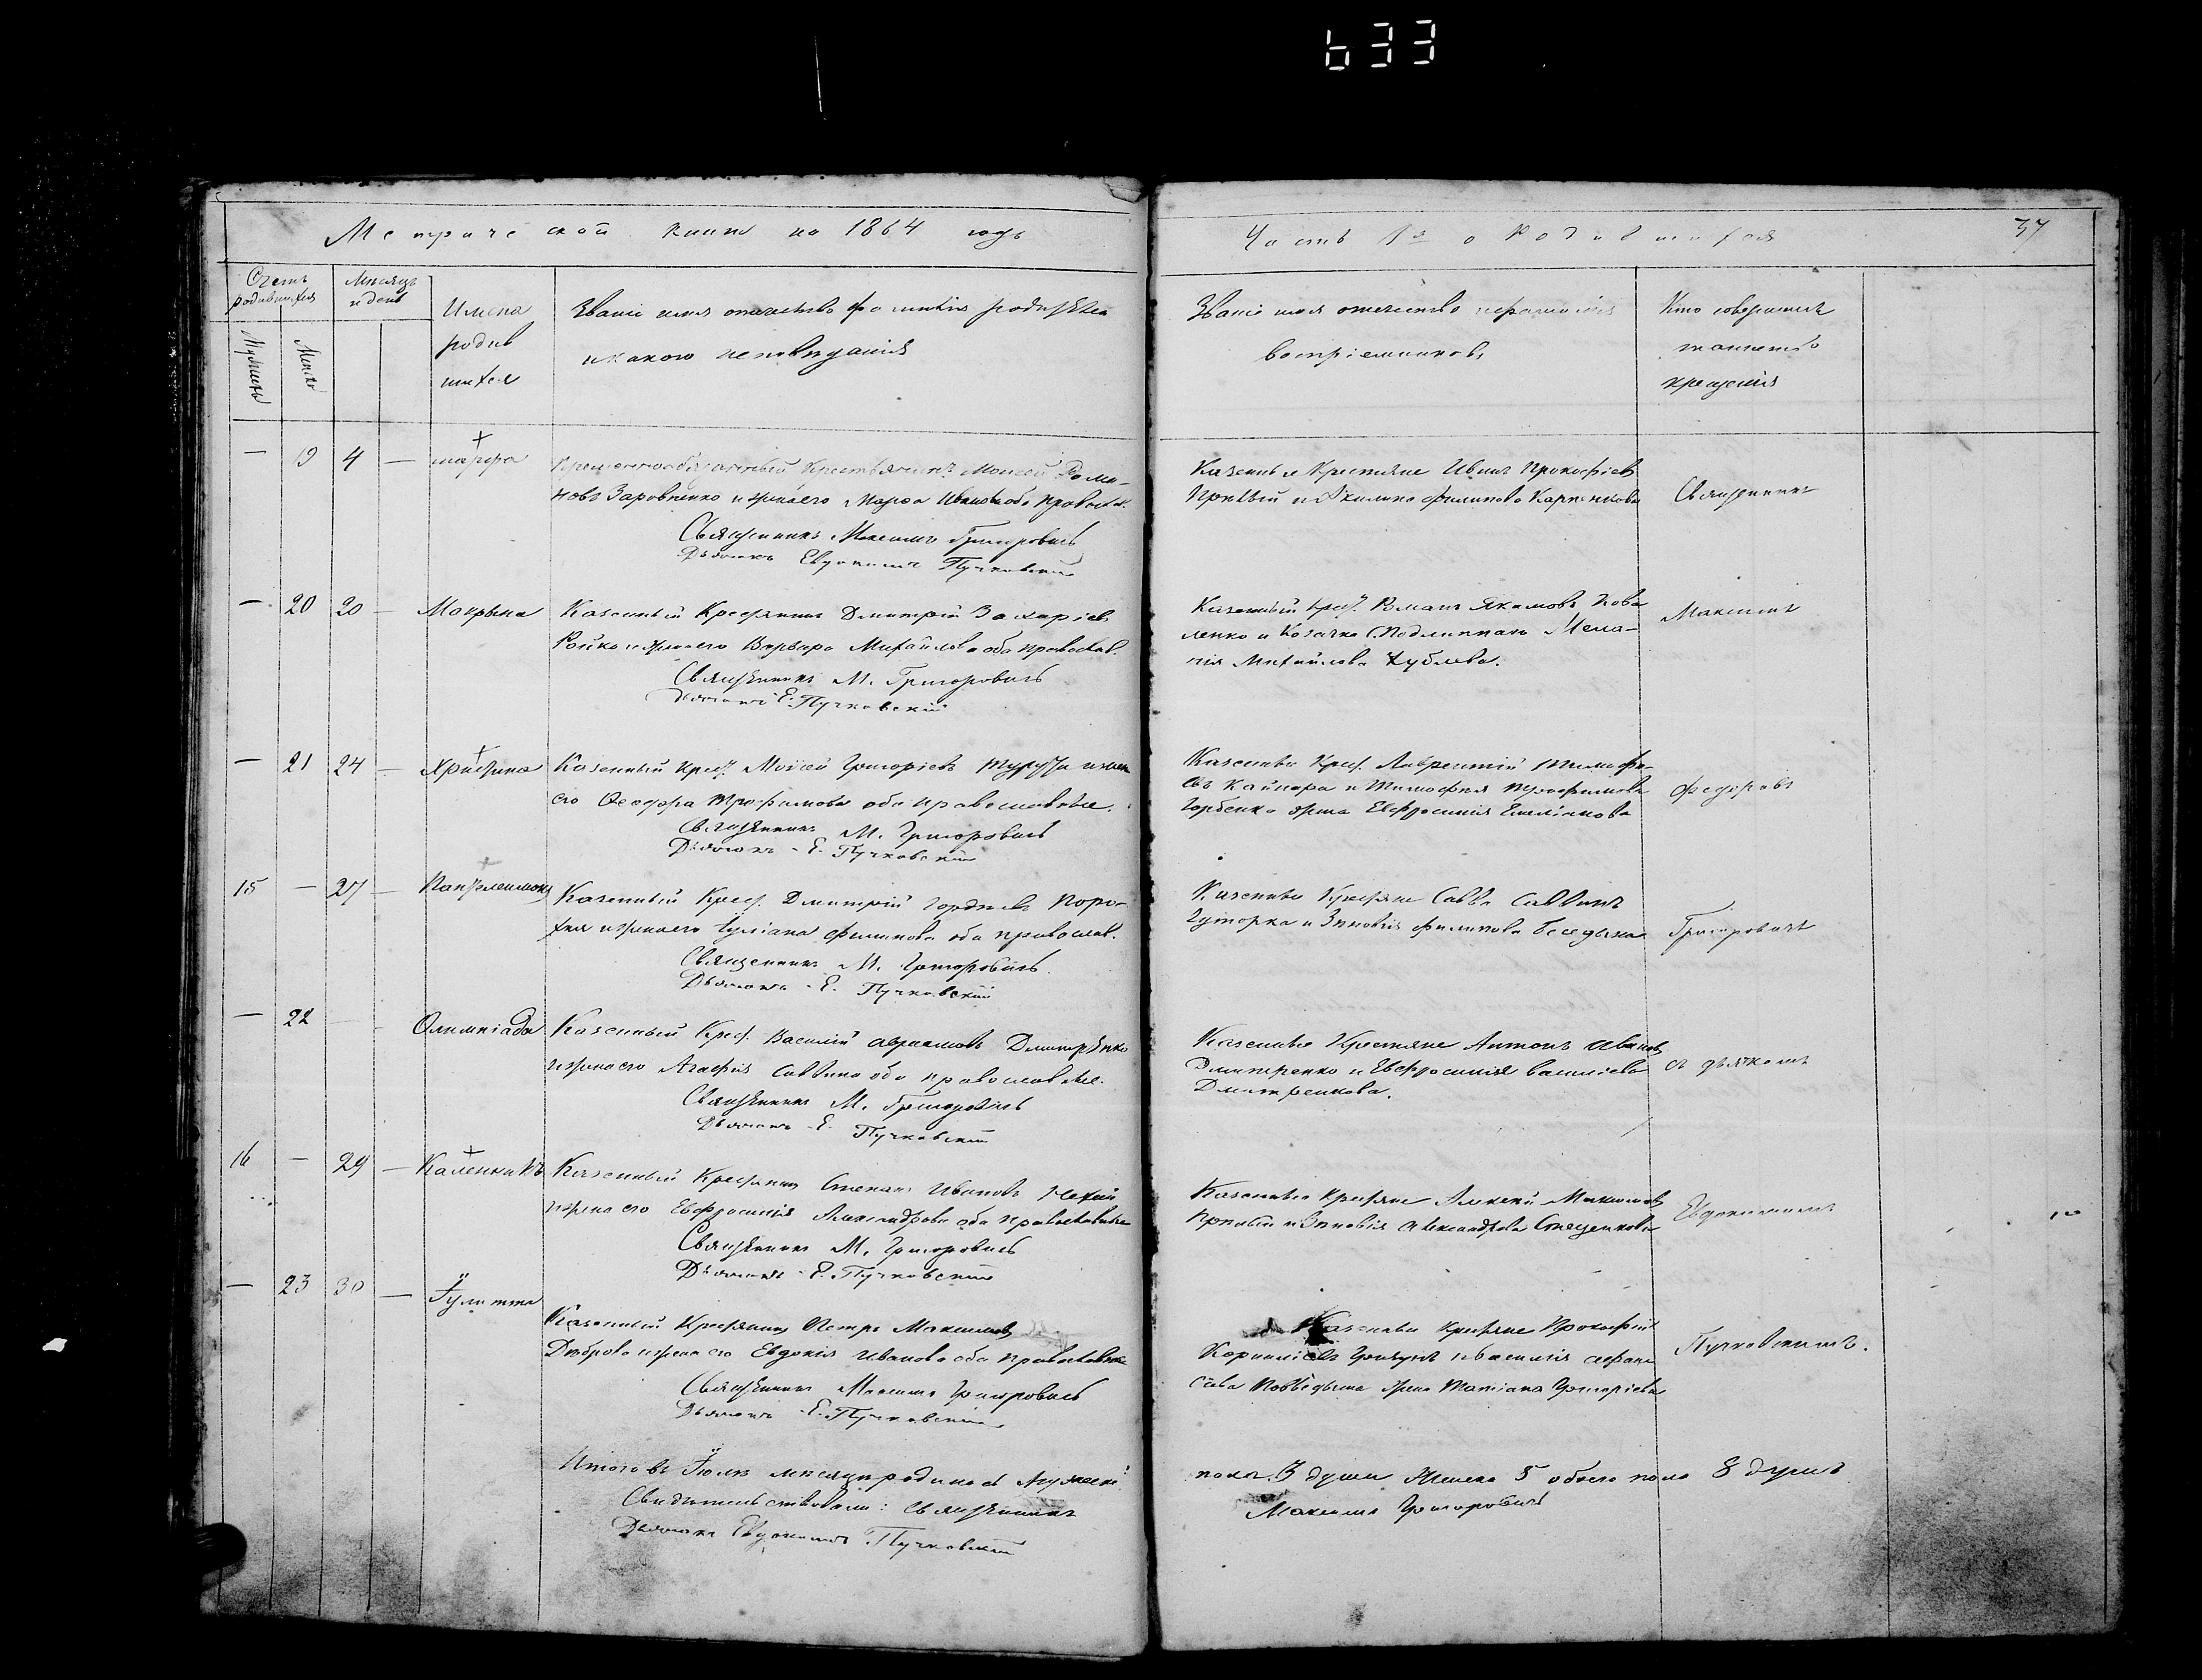 633
Метрической книги на 1864 годъ
Часть 1я о Родившихся
37
Счетъ родившихся
Мѣсяцъ и день
Мужеска
Женска
Имена родив шихся
Званіе имя отечество фамилія родителей
и какого исповѣданія
Званіе имя отечество и фамилія
воспріемниковъ
Кто совершилъ
таинство
крещенія
— 19 4 — марфа
крестьянинъ Моисей Рома-
новъ Заровненко и жена его Марфа Иванова оба православ.
Священникъ Максимъ Григоровичъ
Дьячокъ Евдокимъ Пучковскій
Казенные Крестьяне Иванъ Прокофіевъ
и Акилина Филипова Карпенкова
Священникъ
— 20 20 — Макрына
Казенный Крестянинъ Дмитрій Захаріевъ
Ройко и жена его Варвара Михайлова оба православ.
Священникъ М. Григоровичъ
Дьячокъ Е. Пучковскій
Казенный крест. Романъ Якимовъ Кова
ленко и Козачка Мела-
нія Михайлова
Максимъ
— 21 24 — Христина
Казенный крест. Моѵсей Григоріевъ и жена
его Ѳеодора Трофимова оба православные.
Священникъ М. Григоровичъ
Дьячокъ Е. Пучковскій
Казенные Крест. Лаврентій Тимофе-
евъ и Тимофея Трофимова
Горбенка жена Евфросинія Емеліанова
Федоровъ
15 — 27 — Пантелеимонъ
Казенный Крест. Дмитрій Гордѣевъ Поро-
хня и жена его Іуліана Филипова оба православ.
Священникъ М. Григоровичъ
Дьячокъ Е. Пучковскій
Казенные Крестяне Савва Саввинъ
Гуторка и Зиновія Филипова
Григоровичъ
— 22 — Олимпіада
Казенный Крест. Василій Авраамовъ Дмитренко
и жена его Агафія Саввина оба православные.
Священникъ М. Григоровичъ
Дьячокъ Е. Пучковскій
Казенные Крестяне Антонъ Ивановъ
Дмитренко и Евфросинія Василіева
Дмитренкова.
съ дьячкомъ
16 — 29 — Каленникъ
Казенный Крестянинъ Степанъ Ивановъ Нехай
и жена его Евфросинія Александрова оба православные
Священникъ М. Григоровичъ
Дьячокъ Е. Пучковскій
Казенные Крестяне Алексѣй Максимовъ
и Зиновія Александрова Стеценкова
Евдокимомъ
— 23 30 — Іулитта
Казенный Крестянинъ Петръ Максимовъ
Дюброва и жена его Евдокія Иванова оба православные
Священникъ Максимъ Григоровичъ
Дьячокъ Е. Пучковскій
Казенные Крестяне Прокофій
Корниліевъ и Василія Афана
сіева жена Татіана Григоріева
Пучковскимъ.
Итого въ Іюлѣ мѣсяцѣ родилось Мужеска
пола 3 души Женска 5 обоего пола 8 душъ
Свидѣтельствовали: Священникъ
Максимъ Григоровичъ
Дьячокъ Евдокимъ Пучковскій